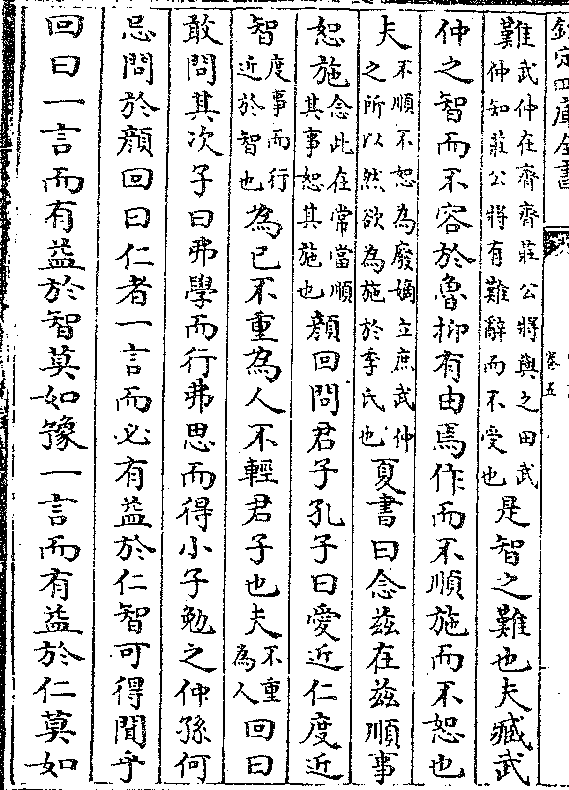 欽定四庫全書
卷五
難武仲在齊齊莊公將與之田武仲知莊公將有難辭而不受也是智之難也夫臧武
仲之智而不容於魯抑有由焉作而不順施而不恕也
夫不順不恕為廢嫡立庶武仲之所以然欲為施於季氏也夏書曰念兹在兹順事
恕施念此在常當順其事恕其施也顔回問君子孔子曰愛近仁度近
智度事而行近於智也為已不重為人不輕君子也夫不重為人回曰
敢問其次子曰弗學而行弗思而得小子勉之仲孫何
忌問於顔回曰仁者一言而必有益於仁智可得聞乎
回曰一言而有益於智莫如豫一言而有益於仁莫如